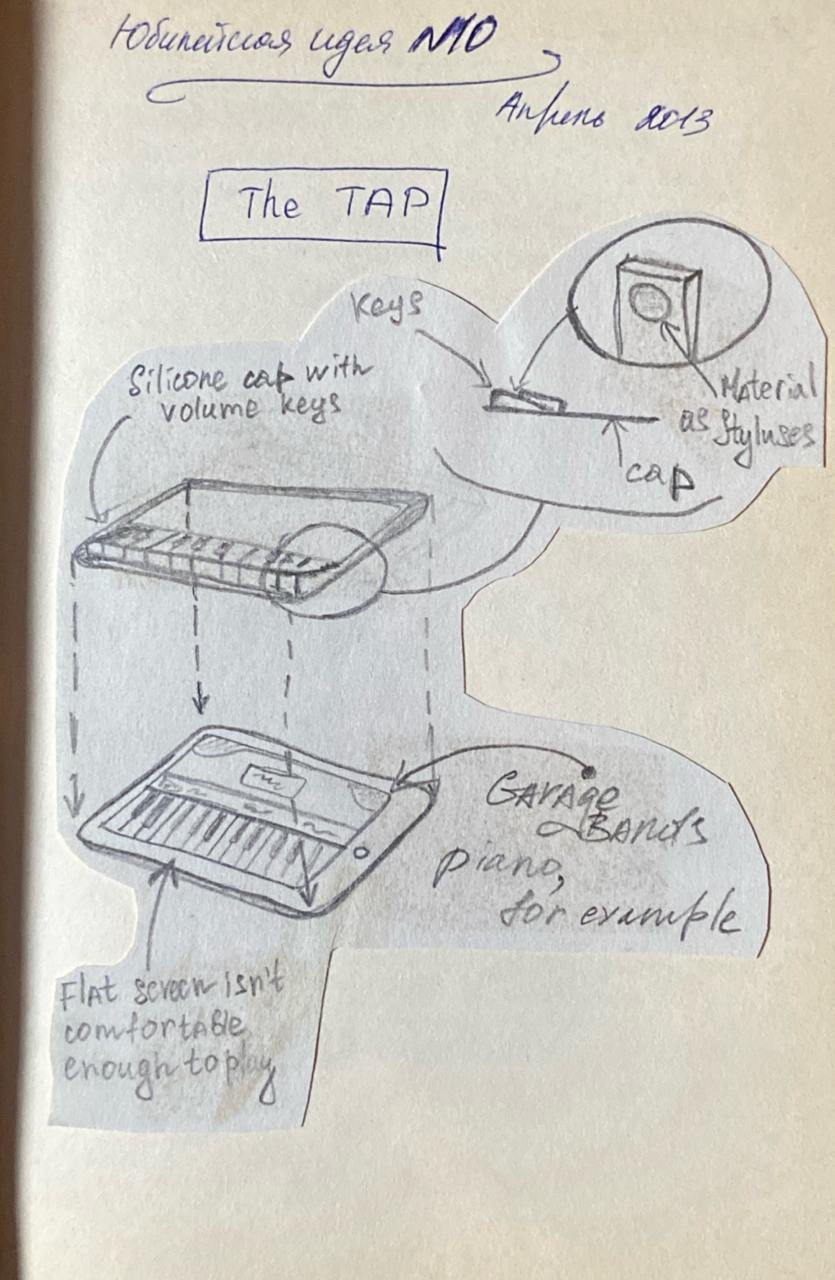 Юбилейная идея №10
Апрель 2013
The TAP
Keys
Silicone cap with
volume keys
Material
as Styluses
cap
GARAge
BANds
piano,
for example
Flat screen isn't
comfortable
enough to play